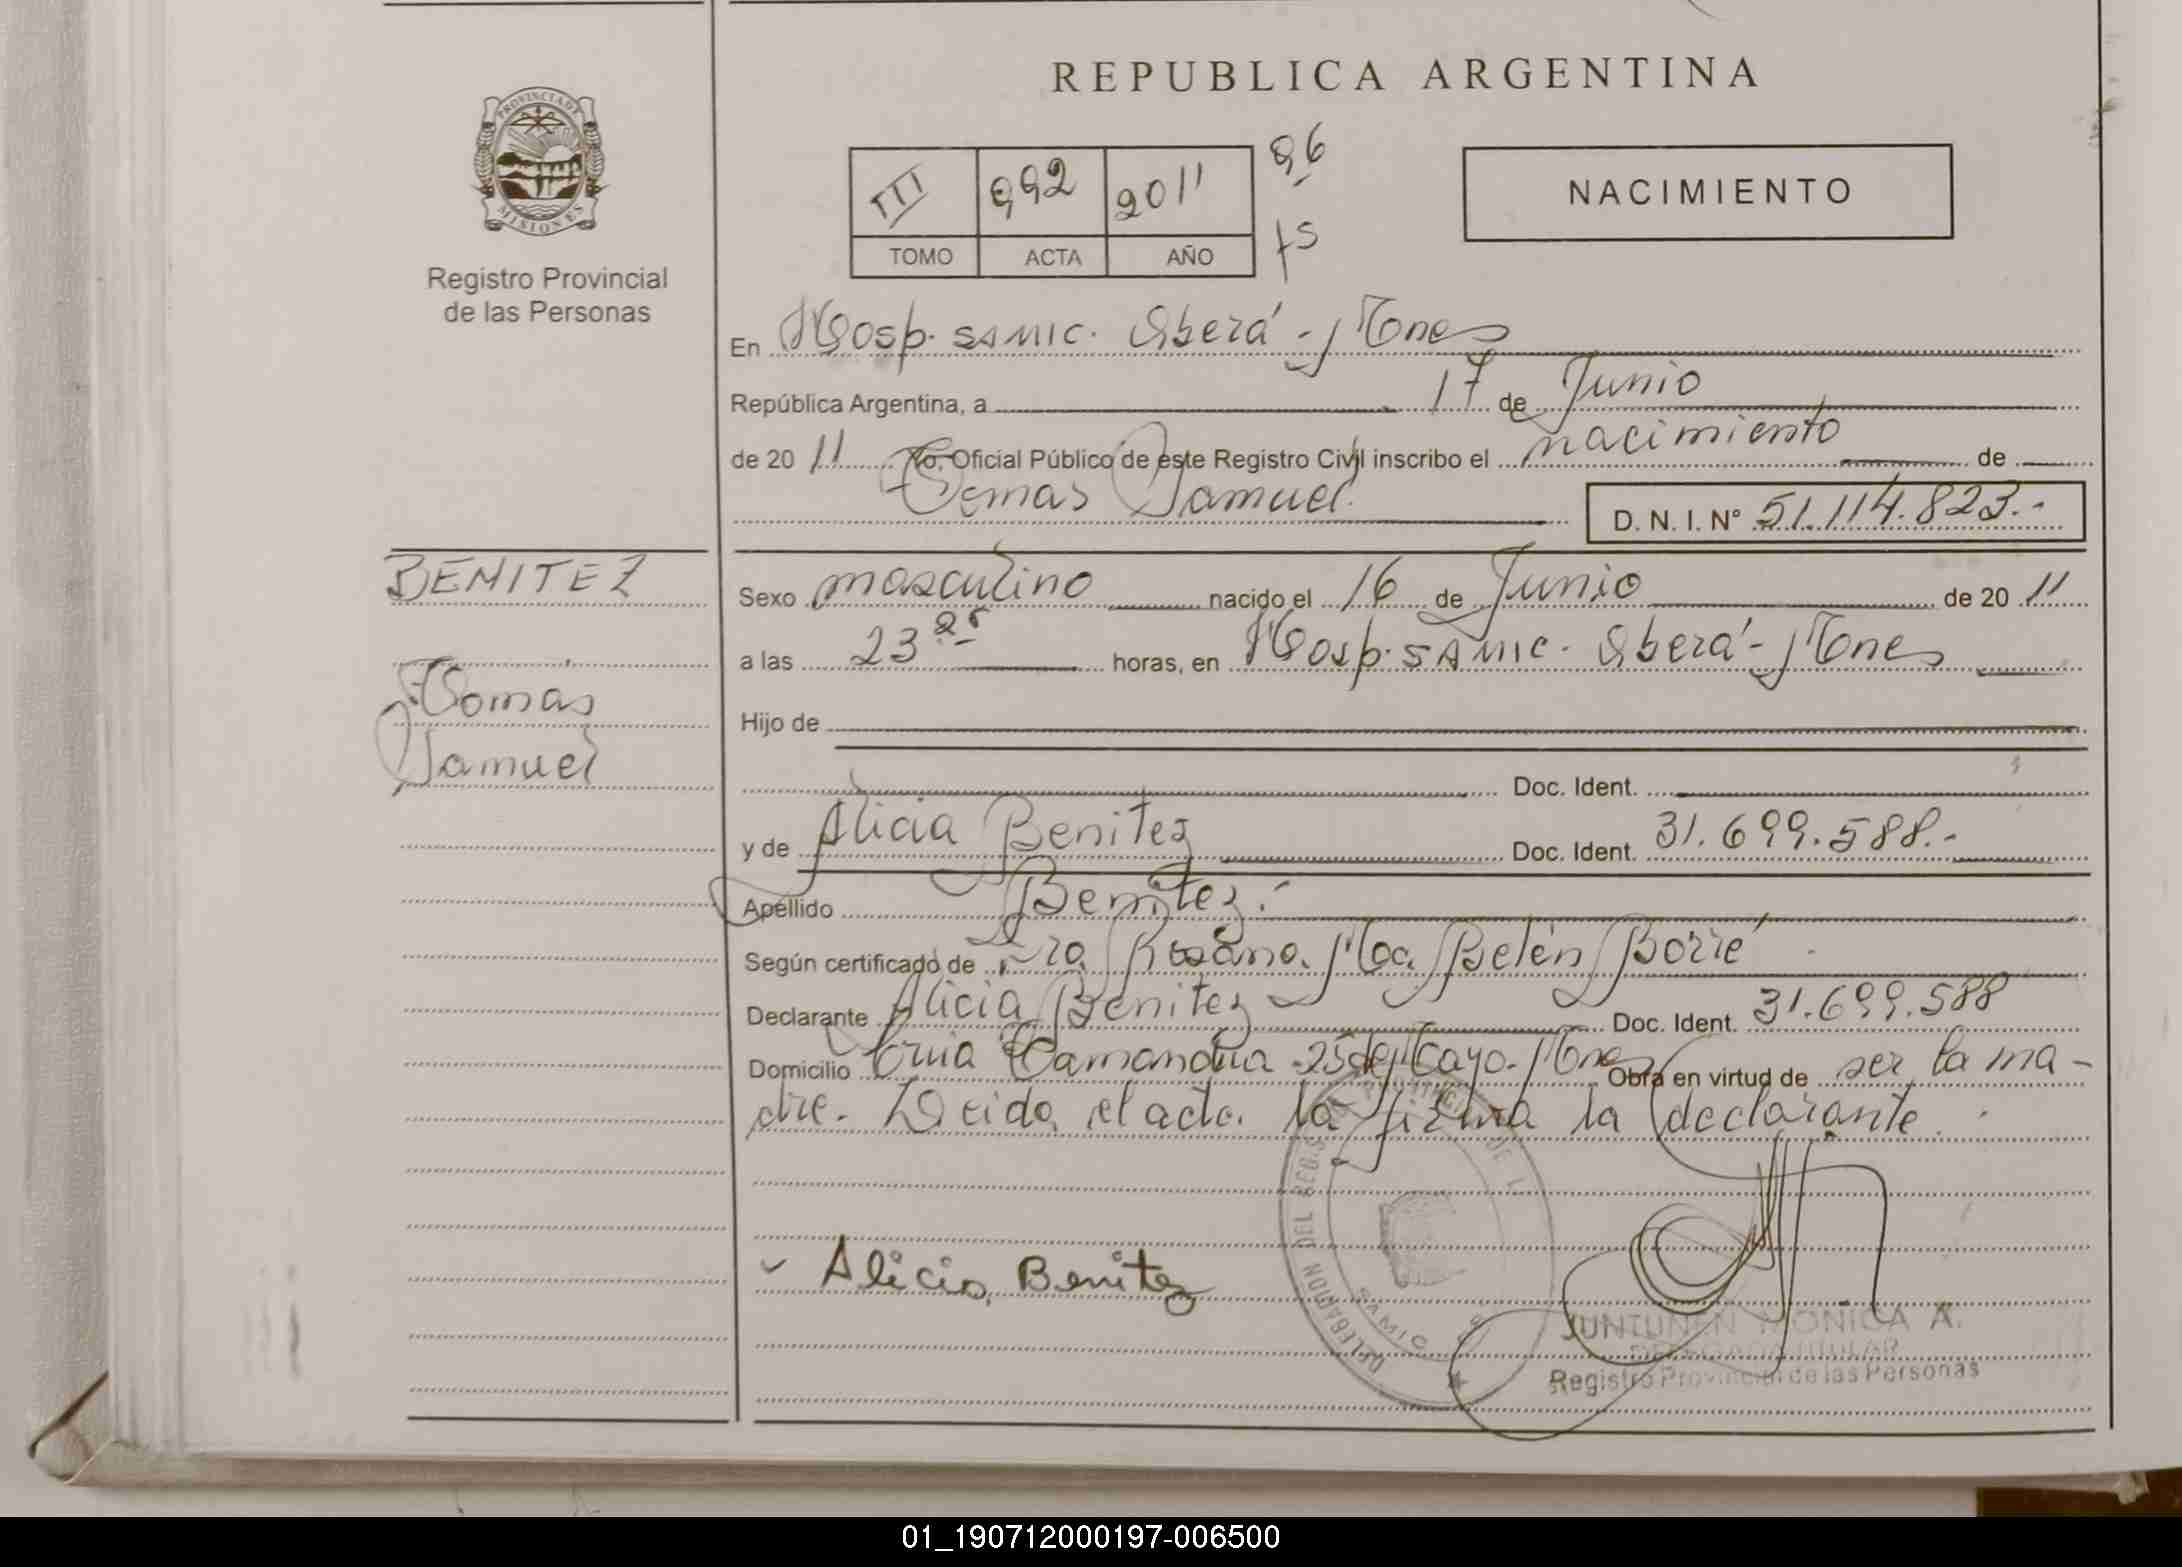 REPUBLICA ARGENTINA
PROVINCIA DE
MISIONES
Registro Provincial
de las Personas
III 992 2011 96
TOMO ACTA AÑO fs
NACIMIENTO
En Hosp. SAMIC. Oberá - Mnes
República Argentina, a 17 de Junio
de 20 11 Yo, Oficial Público de este Registro Civil inscribo el nacimiento de
Tomas Samuel
D. N. I. N° 51.114.823.-
BENITEZ
Tomás
Samuel
Sexo masculino nacido el 16 de Junio de 20 11
a las 23 25 horas, en Hosp. SAMIC. Oberá - Mnes
Hijo de
Doc. Ident.
y de Alicia Benitez Doc. Ident. 31.699.588.-
Apellido Benitez.-
Según certificado de Dra Rosana Ma. Belén Borré
Declarante Alicia Benitez Doc. Ident. 31.699.588
Domicilio 25 de Mayo - Mnes Obra en virtud de ser la ma-
dre. Leida el acta la firma la declarante.
Alicia Benitez
DELEGACION DEL REG. PROVINCIAL DE
SAMIC
JUNTUNEN MONICA A.
DELEGADA TITULAR
Registro Provincial de las Personas
01_190712000197-006500